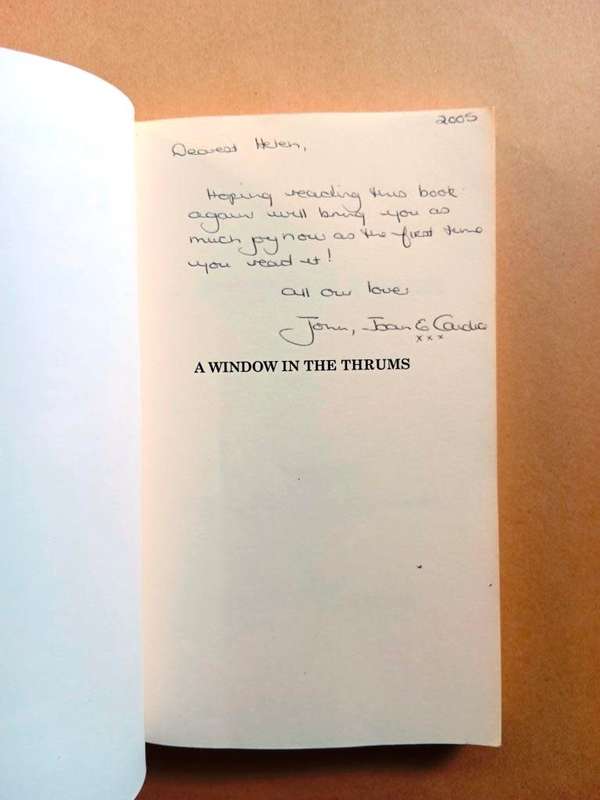 2005
Dearest Helen,
Hoping reading this book
again will bring you as
much joy now as the first time
you read it!
All our love
John, Joan &
x x x
A WINDOW IN THE THRUMS